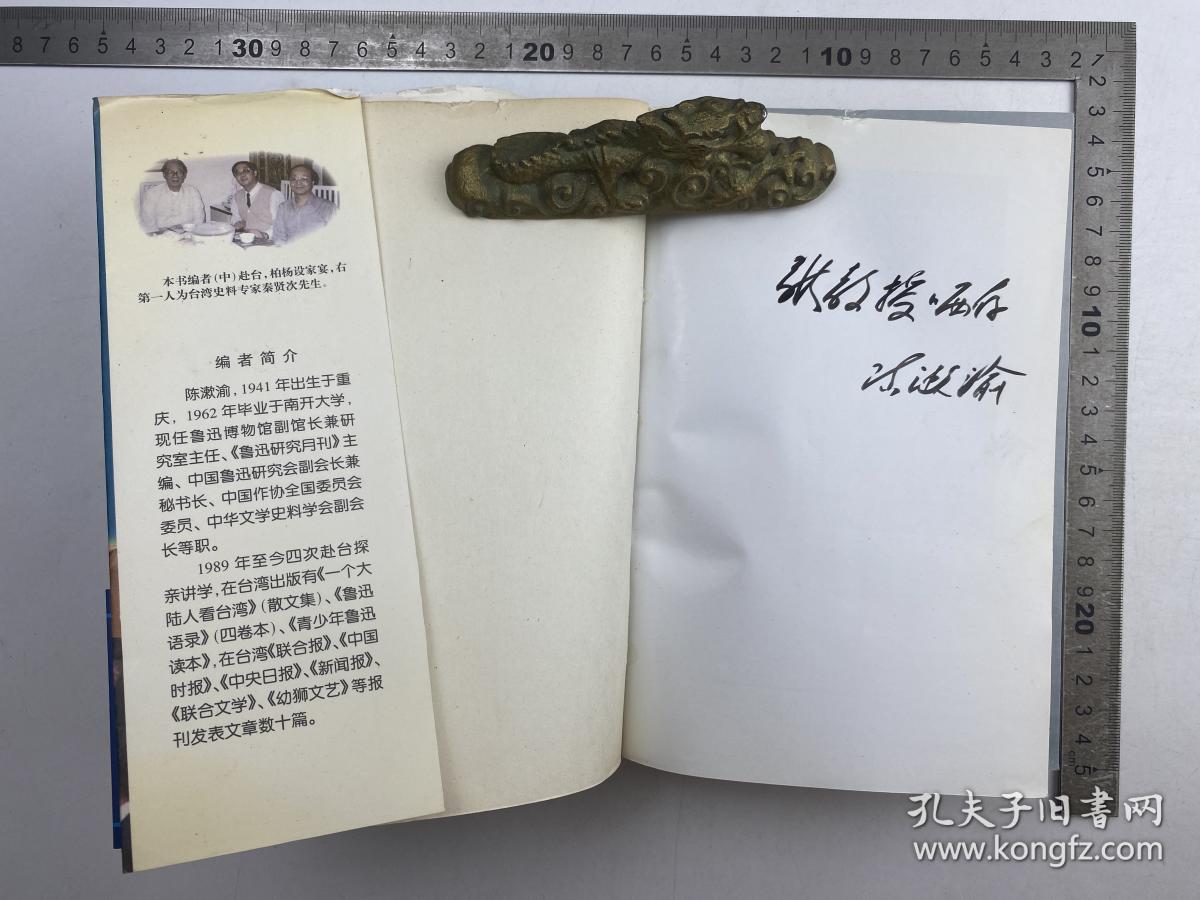 本书编者(中)赴台,柏杨设家宴,右
第一人为台湾史料专家秦贤次先生。
编者简介
陈漱渝,1941年出生于重
庆,1962年毕业于南开大学,
现任鲁迅博物馆副馆长兼研
究室主任、《鲁迅研究月刊》主
编、中国鲁迅研究会副会长兼
秘书长、中国作协全国委员会
委员、中华文学史料学会副会
长等职。
1989年至今四次赴台探
亲讲学,在台湾出版有《一个大
陆人看台湾》(散文集)、《鲁迅
语录》(四卷本)、《青少年鲁迅
读本》,在台湾《联合报》、《中国
时报》、《中央日报》、《新闻报》、
《联合文学》、《幼狮文艺》等报
刊发表文章数十篇。
张教授哂存
陈漱渝
8 7 6 5 4 3 2 1 30 9 8 7 6 5 4 3 2 1 20 9 8 7 6 5 4 3 2 1 10 9 8 7 6 5 4 3 2 1
2 3 4 5 6 7 8 9 10 1 2 3 4 5 6 7 8 9 20 1 2 3 4 cm 5
孔夫子旧书网
www.kongfz.com